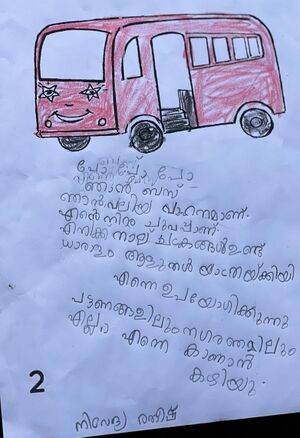 പോ പോ പോ
ഞാൻ ബസ്
ഞാൻ വലിയ വാഹനമാണ്.
എന്റെ നിറം ചുവപ്പാണ്.
എനിക്ക് നാല് ചക്രങ്ങൾ ഉണ്ട്
ധാരാളം ആളുകൾ യാത്രയ്ക്കായി
എന്നെ ഉപയോഗിക്കുന്നു
പട്ടണങ്ങളിലും നഗരങ്ങളിലും
എല്ലാം എന്നെ കാണാൻ
കഴിയും.
2
നിവേദ്യ